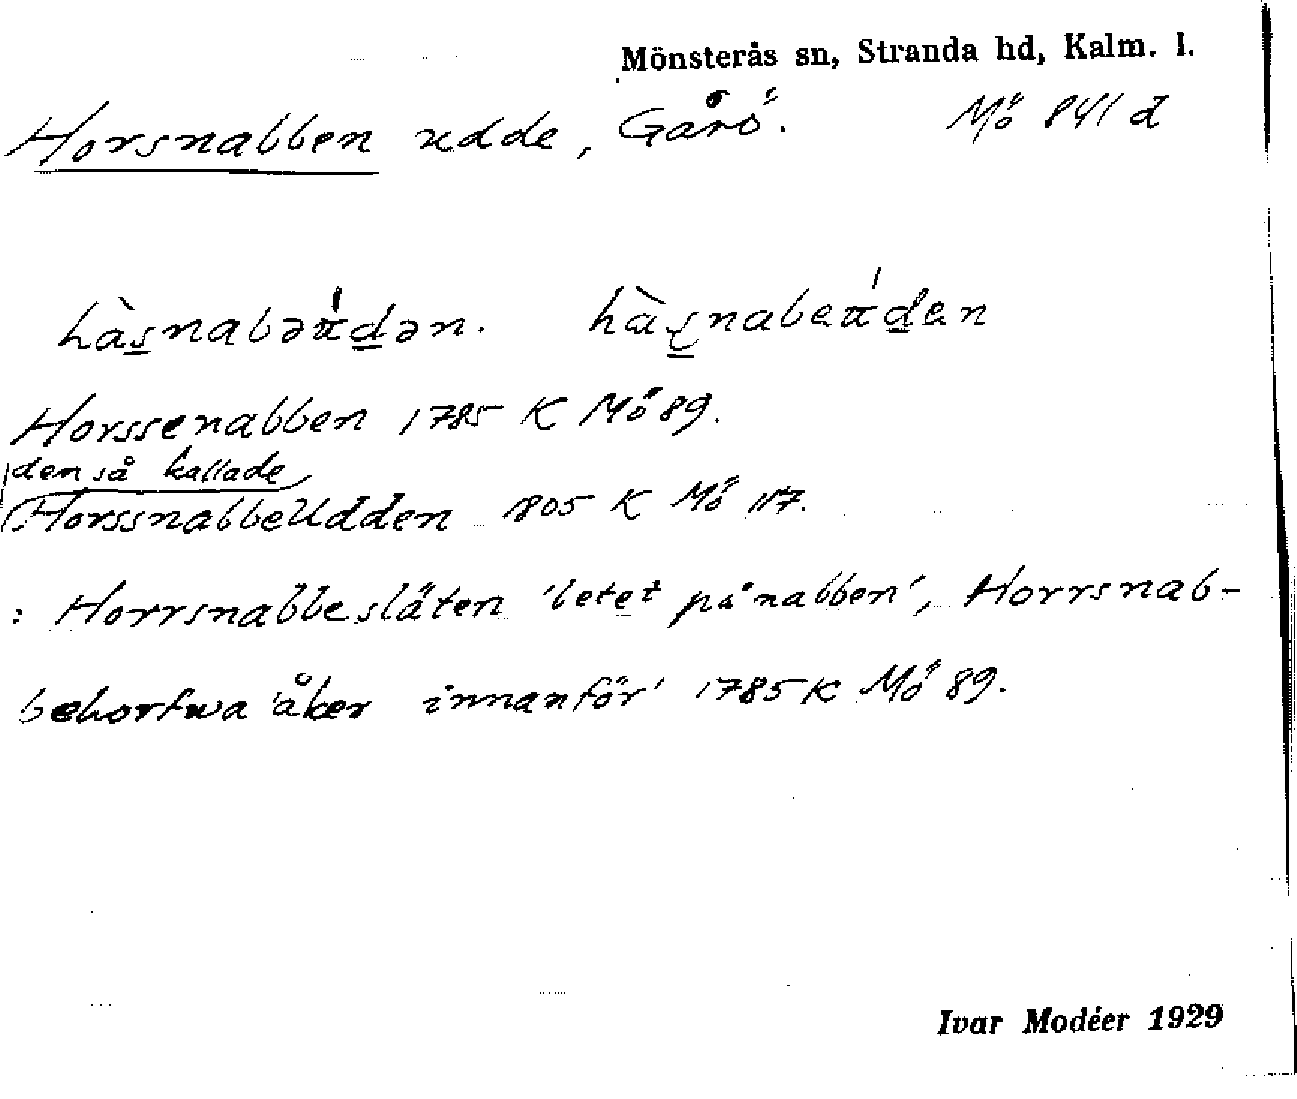 Mönsterås sn, Stranda hd, Kalm. l.
Horsnabben udde, Gårö. Mö 841 d
hàsnabəu̍dən. hàsnabeu̍den
Horssenabben 1785 K Mö 89.
den så kallade
HorssnabbeUdden 1805 K Mö 117.
: Horrsnabbesläten 'betet på nabben', Horrsnab-
behorfwa 'åker innanför' 1785 K Mö 89.
Ivar Modéer 1929